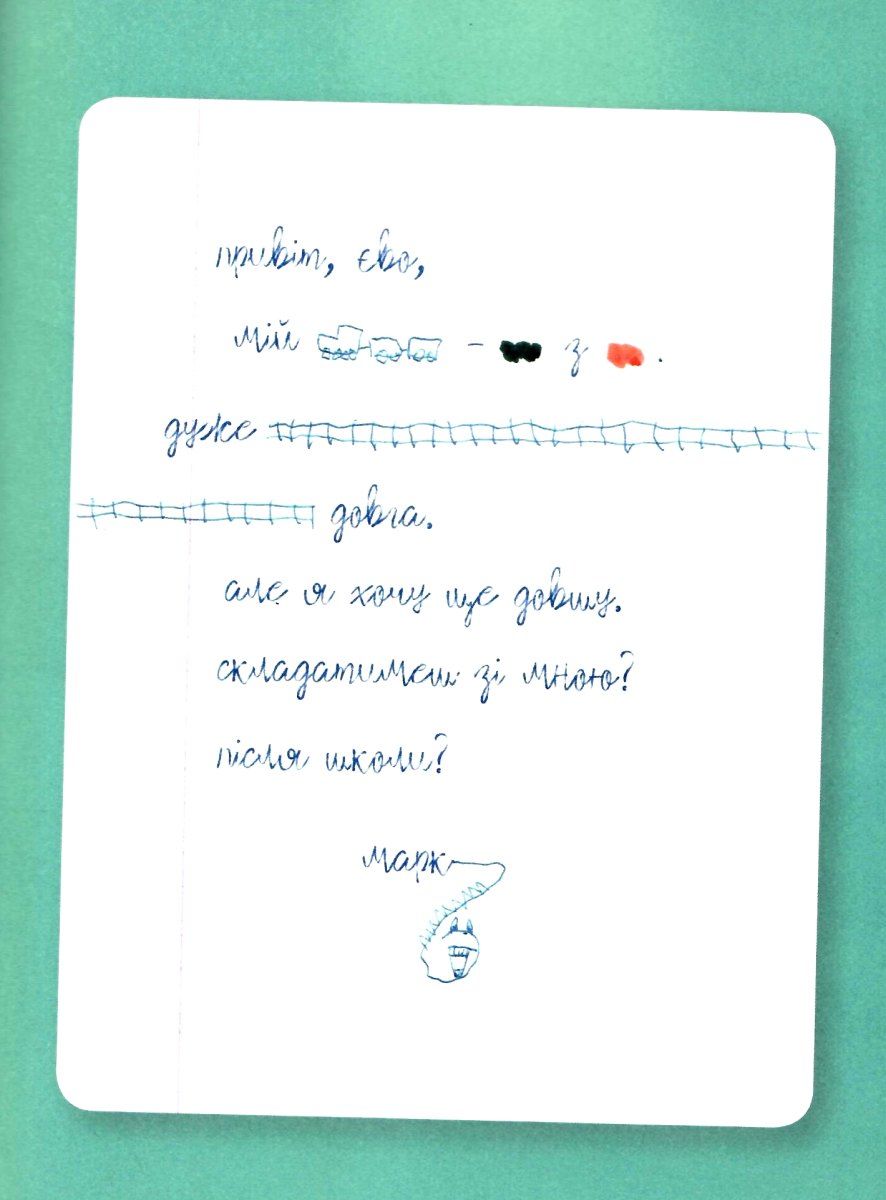 привіт, єво,
мій – з .
дуже
довга.
але я хочу ще довшу.
складатимеш зі мною?
після школи?
марк